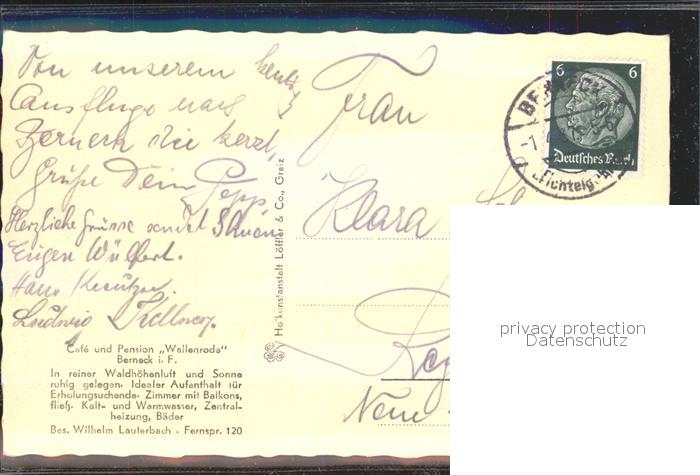 Von unserem heutig
Ausflug nach
Berneck die herzl.
Grüße Dein Sepp
Herzliche Grüsse sendet
Eugen Wülfert.
Hans
Ludwig Kellner
Café und Pension „Wallenroda"
Berneck i. F.
In reiner Waldhöhenluft und Sonne
ruhig gelegen. Idealer Aufenthalt für
Erholungsuchende. Zimmer mit Balkons,
fließ. Kalt- und Warmwasser, Zentral-
heizung, Bäder
Bes. Wilhelm Lauterbach · Fernspr. 120
Hofkunstanstalt Löffler & Co., Greiz
Frau
Klara
Reg
Neue
6 6
Deutsches Reich
BERNECK
Fichtelg
privacy protection
Datenschutz